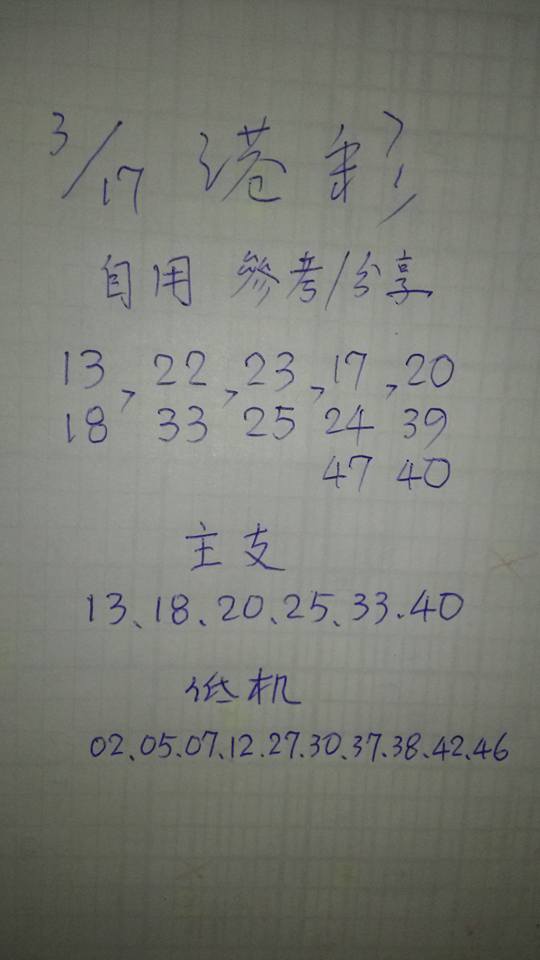 3/17 港彩
自用 參考/分享
13, 22, 23, 17, 20
18 33 25 24 39
47 40
主支
13、18、20、25、33.40
低机
02、05.07、12.27.30、37、38、42、46